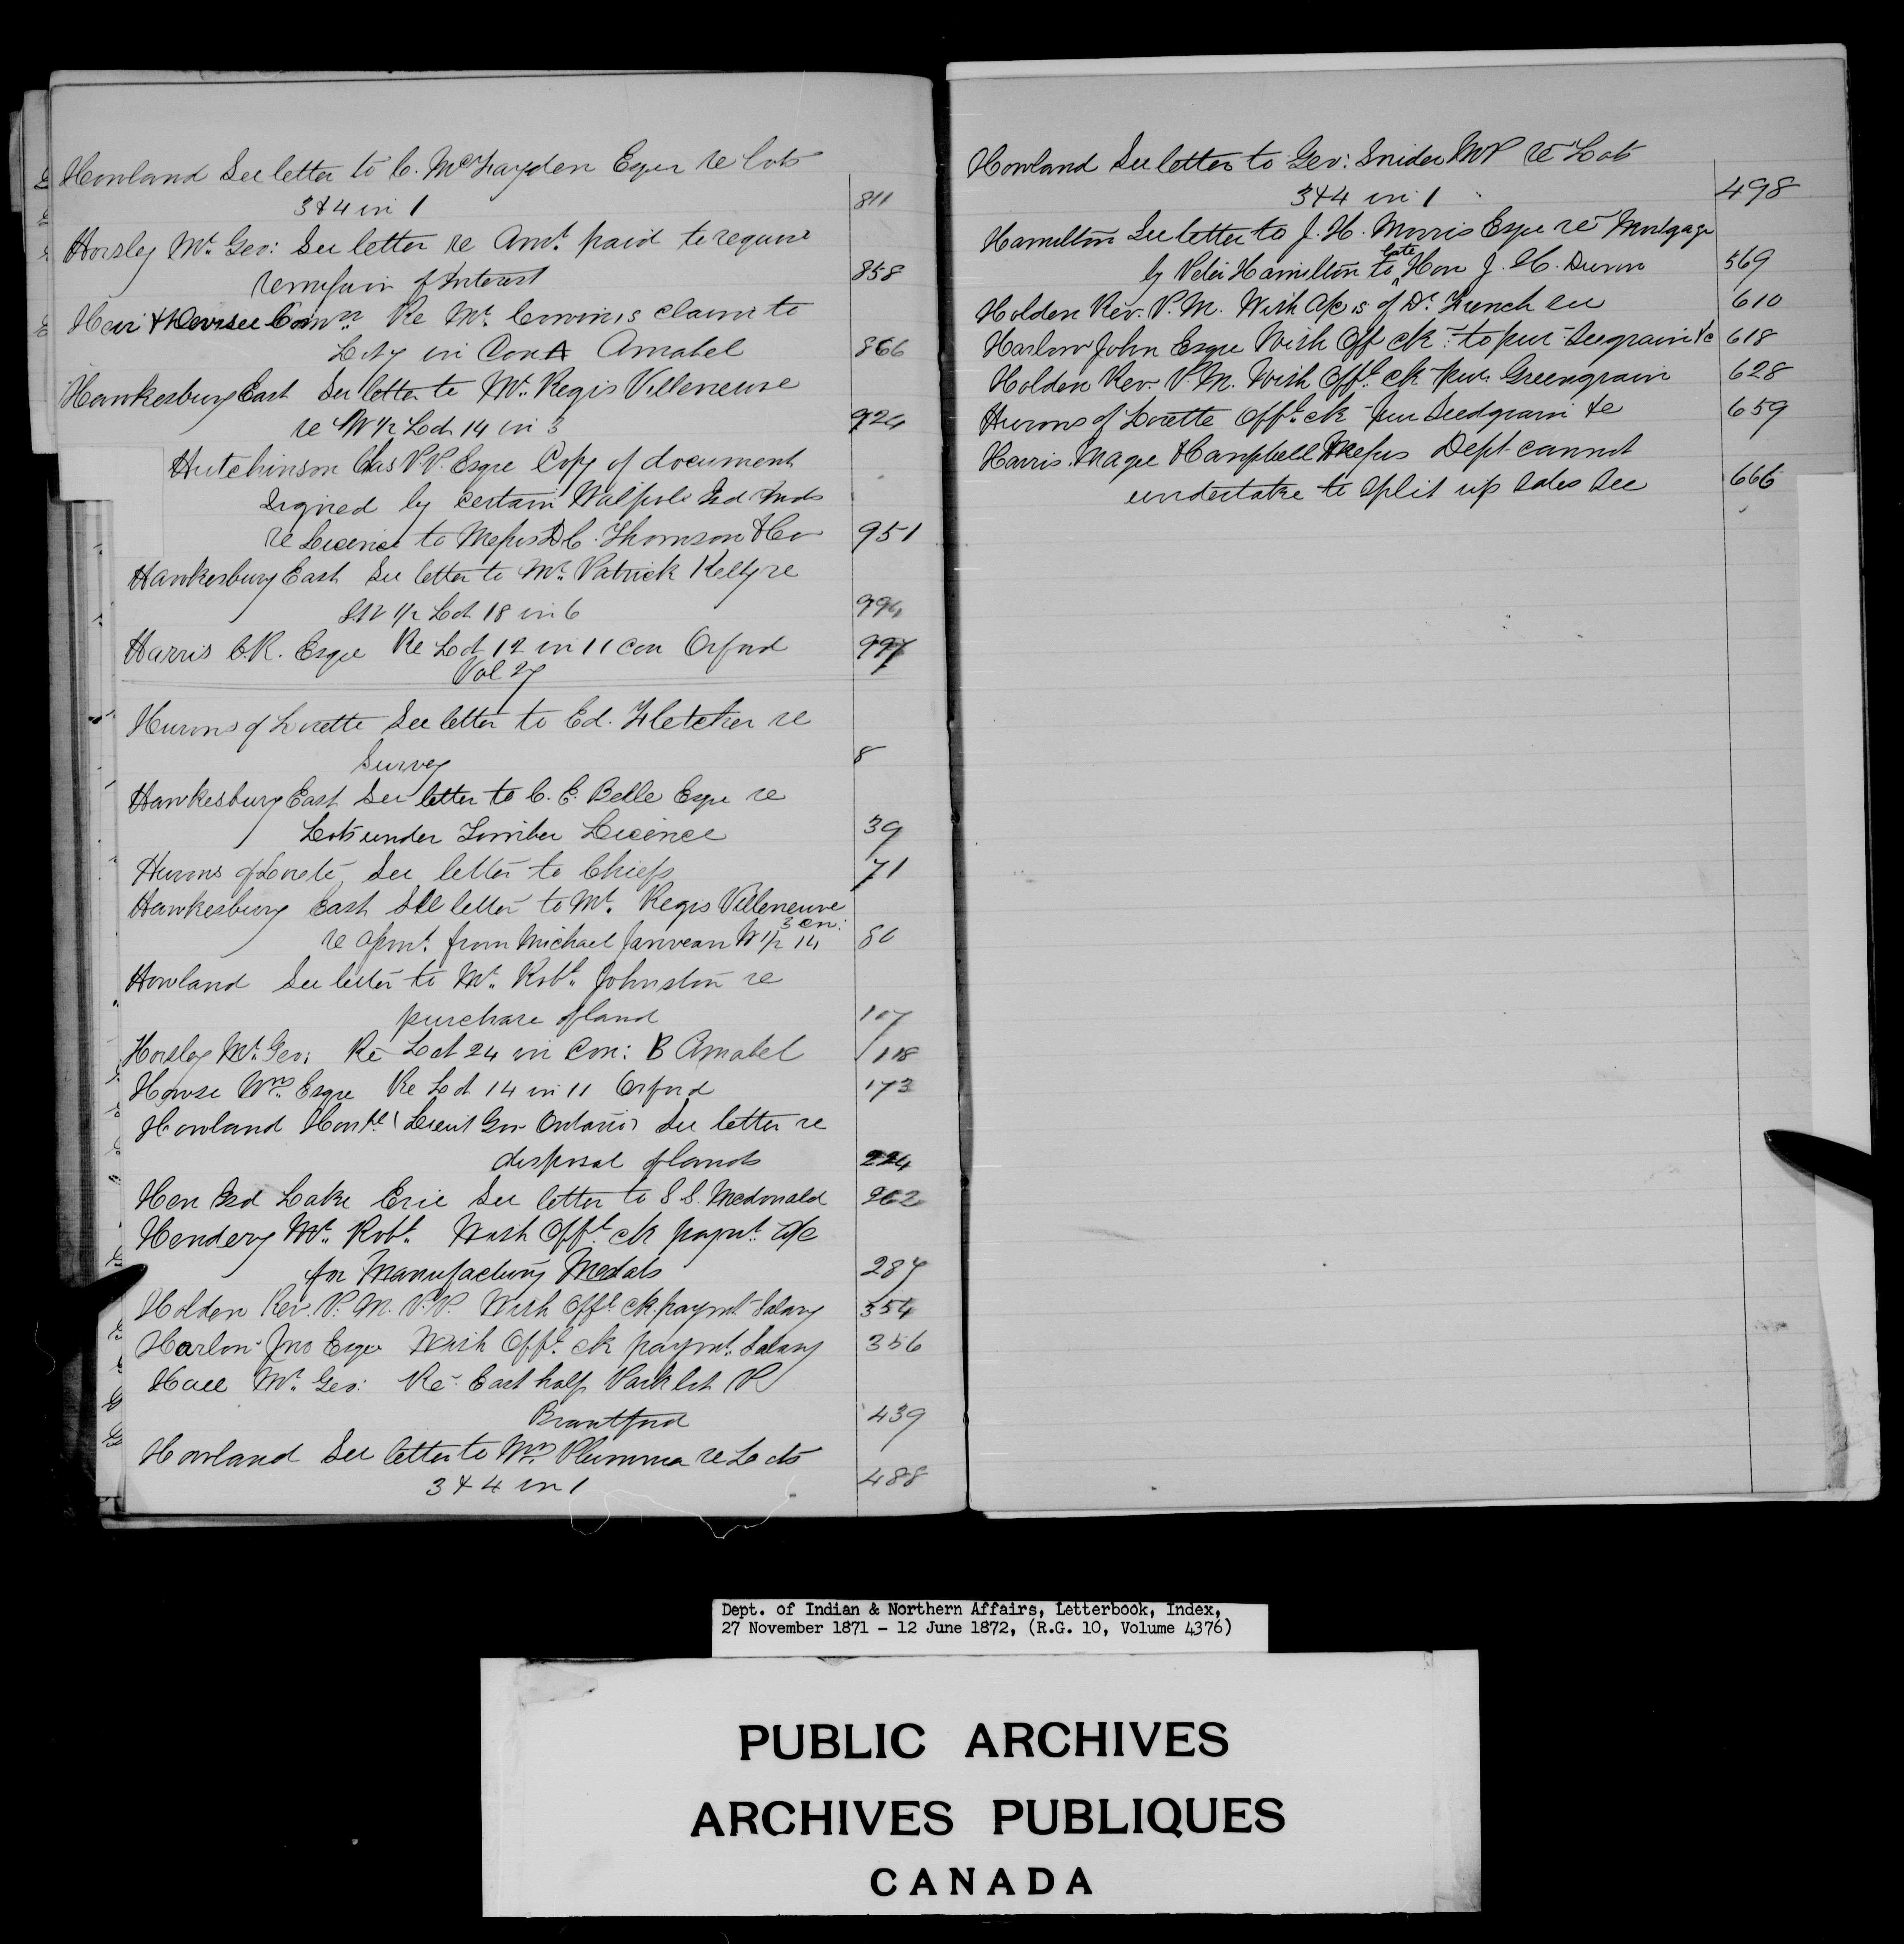 Howland See letter to C. McFayden Esqre re lots
3 & 4 in 1 811
Horsley Mr. Geo: See letter re Amt. paid to require
remission of Interest 858
Heir & Devisee Comn. Re Mr. claim to
Lot 7 in Con A Amabel 866
Hawkesbury East See letter to Mr. Regis Villeneuve
re W 1/2 Lot 14 in 3 924
Hutchinson Chas P.P. Esqre Copy of document
signed by certain Walpole Isd Inds
re Licence to Messrs D.C. Thomson & Co 951
Hawkesbury East See letter to Mr. Patrick Kelly re
1/2 Lot 18 in 6 994
Harris C.R. Esqre Re Lot 12 in 11 con Orford 997
Vol 27
Hurons of Lorette See letter to Ed. Fletcher re
Survey 8
Hawkesbury East See letter to C. E. Belle Esqre re
Lots under Timber Licence 39
Hurons of Lorette, See letter to Chiefs 71
Hawkesbury East See letter to Mr. Regis Villeneuve
3 Con:
re from Michael W 1/2 14 80
Howland See letter to Mr. Robt. Johnston re
purchase of land 107
Horsley Mr. Geo: Re Lot 24 in Con: B Amabel 118
Howse Wm. Esqre Re Lot 14 in 11 Orford 173
Howland Honble (Lieut Gov Ontario) See letter re
disposal of lands 224
Hen Isd Lake Erie See letter to S S. Mcdonald 262
Hendery Mr. Robt. With Offl. ck paymt. a/c
for Manufacturing Medals 287
Holden Rev. P. M. P.P. With Offl. ck. paymt. Salary 354
Harlow Jno Esqre With Offl. ck paymt. Salary 356
Hall Mr. Geo: Re East half Park lot P
Brantford 439
Howland See letter to Wm. Plummer re Lots
3 & 4 in 1 488
Howland See letter to Geo: Snider MP re Lots
3 & 4 in 1 498
Hamilton See letter to J. H. Morris Esqre re Mortgage
late
by Peter Hamilton to Hon J. H. 569
Holden Rev. P. M. With a/cs of Dr. French 610
Harlow John Esqre With Off ck to pur Seegrain &c 618
Holden Rev. P. M. With Offl. ck pur. Greengrain 628
Hurons of Lorette Offl. ck pur Seedgrain &c 659
Harris Magee & Campbell Messrs Dept cannot
undertake to split up sales See 666
Dept. of Indian & Northern Affairs, Letterbook, Index,
27 November 1871 – 12 June 1872, (R.G. 10, Volume 4376)
PUBLIC ARCHIVES
ARCHIVES PUBLIQUES
CANADA